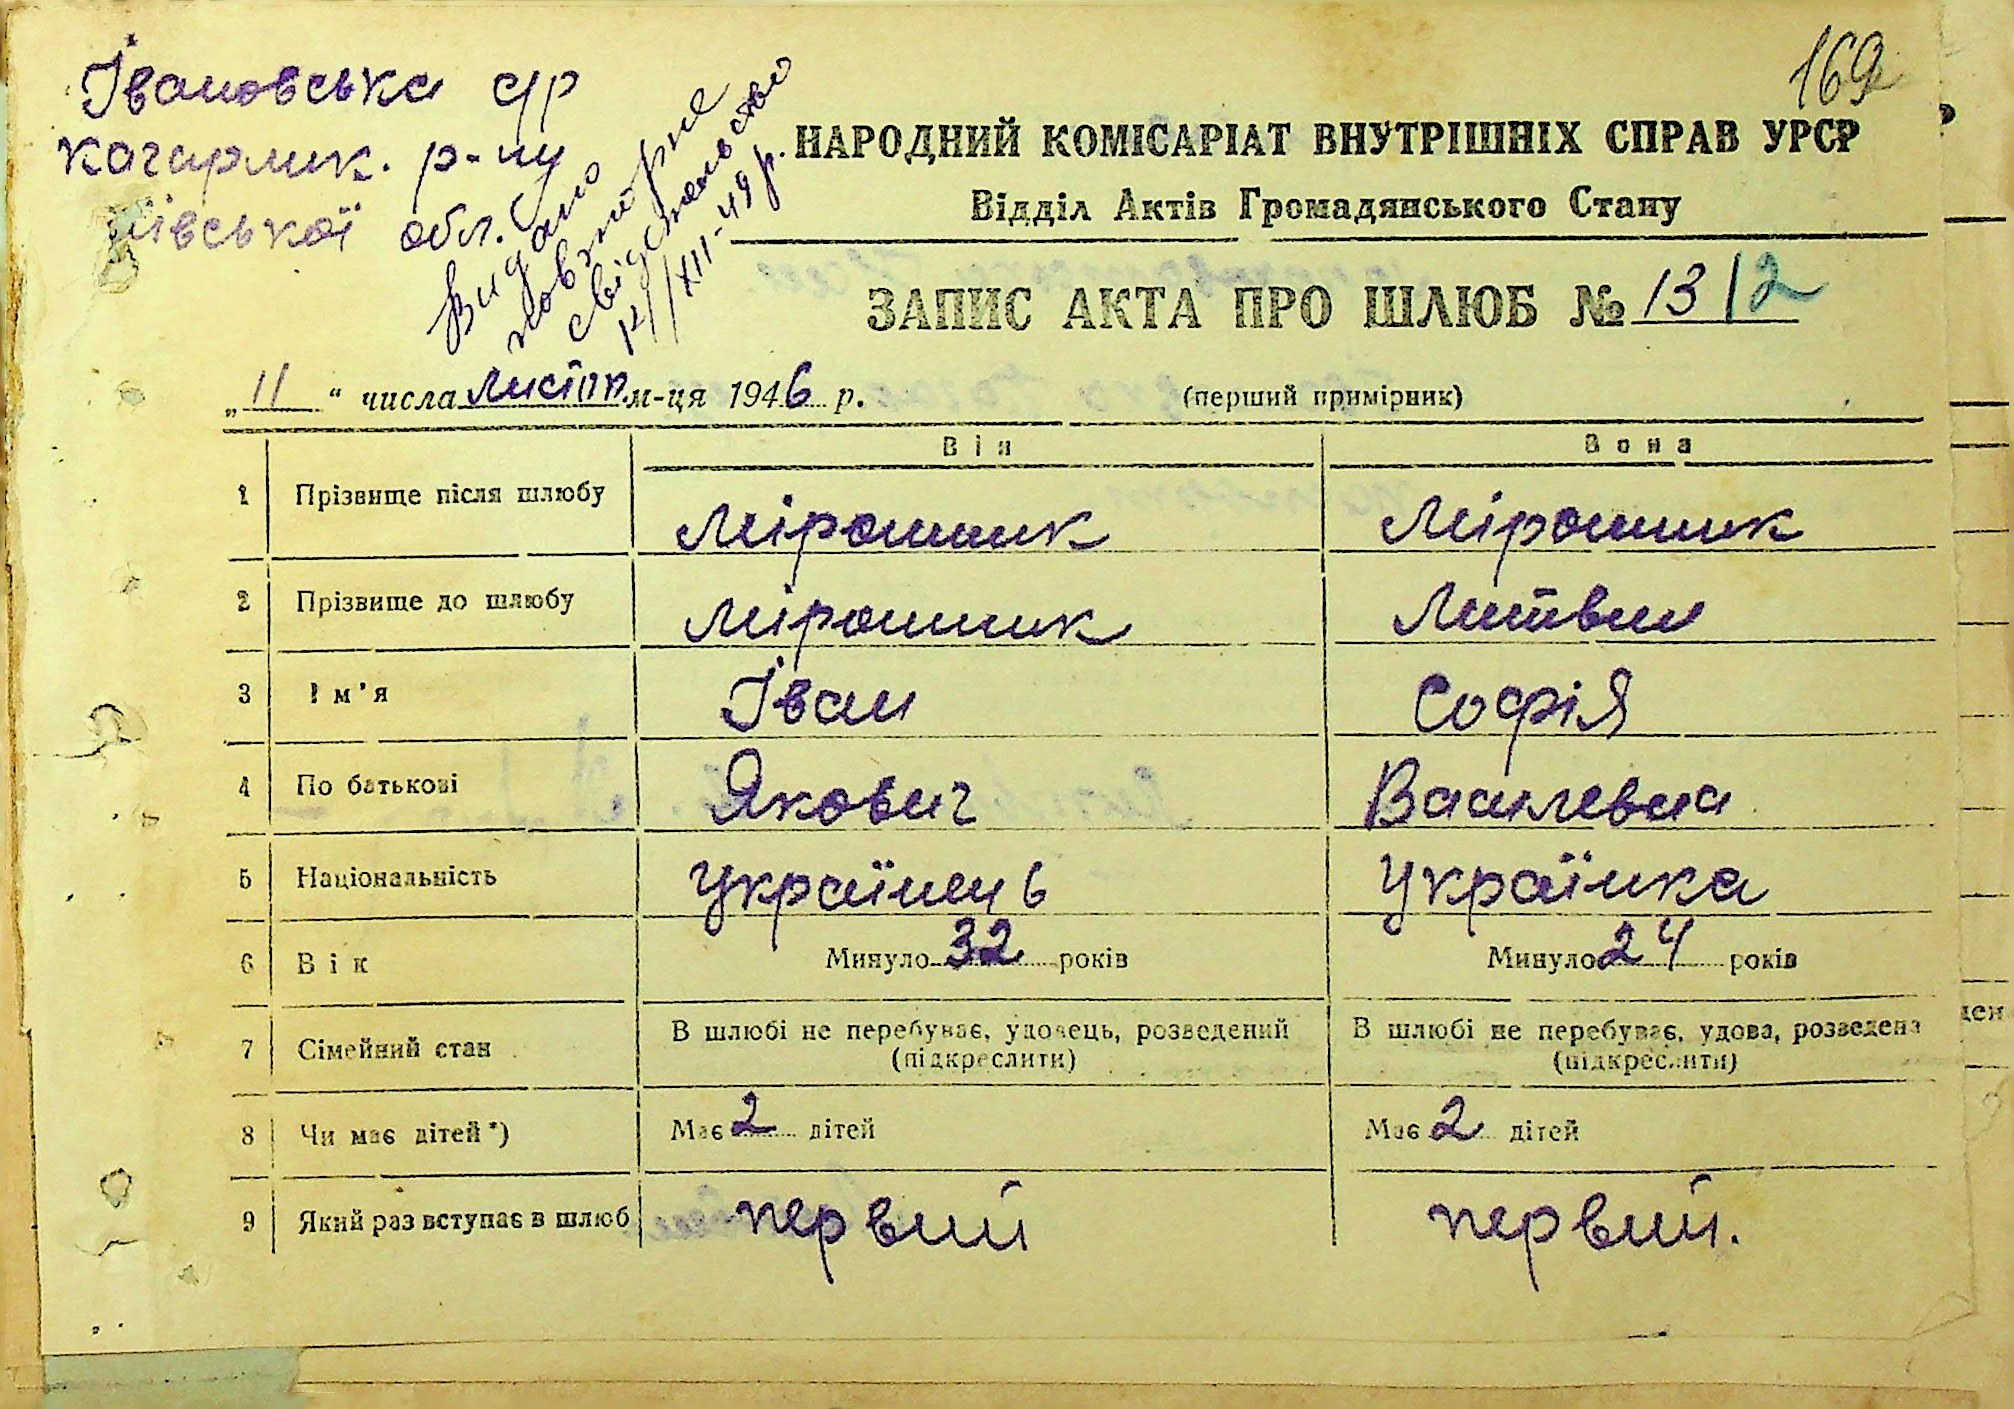 Івановська с/р
Кагарлик. р-ну
Київської обл.
Видано
повторне
свідетельство
12/XII-49 р.
169
НАРОДНИЙ КОМІСАРІАТ ВНУТРІШНІХ СПРАВ УРСР
Відділ Актів Громадянського Стану
ЗАПИС АКТА ПРО ШЛЮБ № 13/2
„11“ числа листоп. м-ця 1946 р. (перший примірник)
Він Вона
1 Прізвище після шлюбу Мірошник Мірошник
2 Прізвище до шлюбу Мірошник Литвин
3 Ім'я Іван Софія
4 По батькові Якович Василевна
5 Національність Українець Українка
6 Вік Минуло 32 років Минуло 24 років
7 Сімейний стан В шлюбі не перебуває, удовець, розведений (підкреслити) В шлюбі не перебуває, удова, розведена (підкреслити)
8 Чи має дітей*) Має 2 дітей Має 2 дітей
9 Який раз вступає в шлюб первий первий.